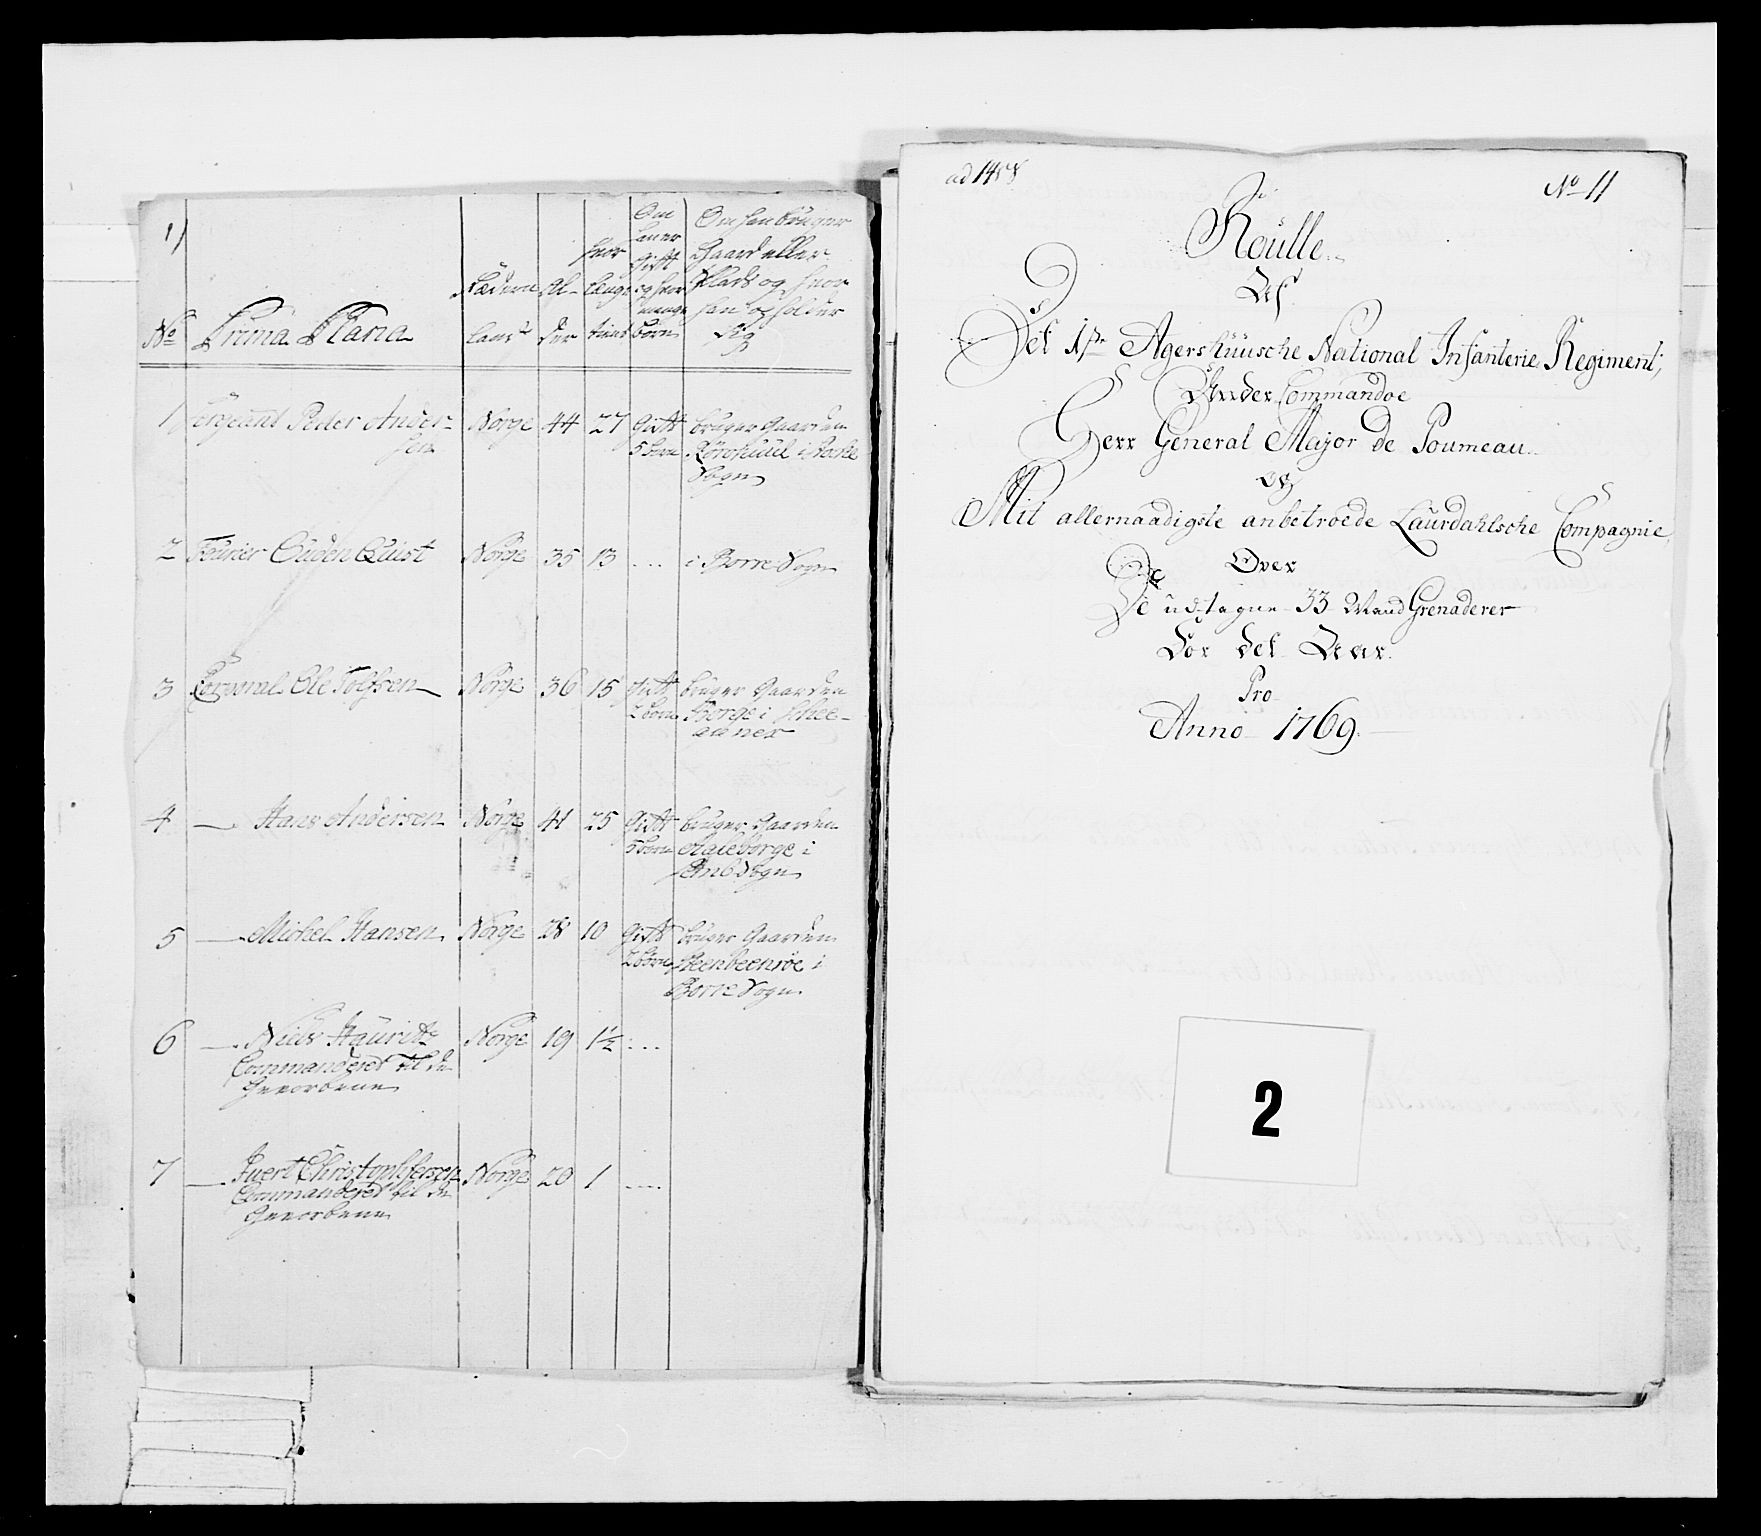 1)
No
Prima Plana
Fæderne
Land
Al-
der
hvor
længe
tient
Om
han er
Gift
og hvor
mange
Børn
Om han bruger
Gaard eller
Plads og hvor
han opholder
Sig
1 Sergeant Peder Ander-
sen
Norge 44 27 Gift
5 børn
bruger Gaarden
i
Sogn
2 Fourier Ouden Quist Norge 35 13 ... i Borre Sogn
3 Corporal Ole Tolfsen Norge 36 15 gift
2 børn
bruger Gaarden
Borge i Schee-
4 — Hans Andersen Norge 41 25 Gift
5 børn
bruger Gaarden
i
Sogn
5 — Mickel Hansen Norge 28 10 Gift
2 børn
bruger Gaarden
i
Borre Sogn
6 — Niels Hauritz Norge 19 1½ ...
Commanderet til de
Gevorbene
7 — Juert Christophersen Norge 20 1 ....
Commanderet til de
Gevorbene
ad 1458
No 11
Roulle
Af
Det 1ste Agershuusche National Infanterie Regiment,
Under Commando
Herr General Major de Poumeau
og
Mit allernaadigste anbetroede Laurdahlsche Compagnie,
Over
De udtagne 33 Mand Grenaderer
For det Aar
Pro
Anno 1769
2